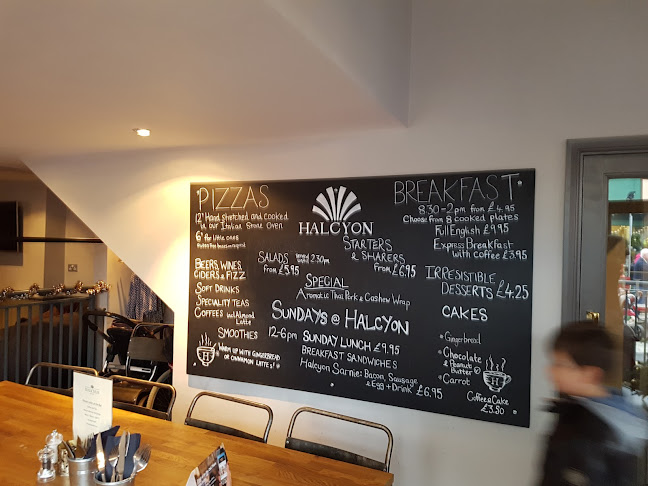 PIZZAS
12" Hand stretched and cooked
in our Italian Stone Oven
6" for little ones
BEERS, WINES,
CIDERS & FIZZ
SOFT DRINKS
SPECIALITY TEAS
COFFEES incl Almond
Latte
SMOOTHIES
WARM UP WITH GINGERBREAD
OR CINNAMON LATTE!
H
HALCYON
STARTERS
& SHARERS
FROM £6.95
SALADS
2.30pm
FROM £5.95
SPECIAL
Aromatic Thai Pork & Cashew Wrap
SUNDAYS @ HALCYON
12-6pm SUNDAY LUNCH £9.95
BREAKFAST SANDWICHES
Halcyon Sarnie: Bacon, Sausage
& Egg + Drink £6.95
BREAKFAST
8.30-2pm FROM £4.95
Choose from 8 cooked plates
Full English £9.95
Express Breakfast
with coffee £3.95
IRRESISTIBLE
DESSERTS £4.25
CAKES
Gingerbread
Chocolate
& Peanut
Butter
Carrot
H
Coffee & Cake
£3.50